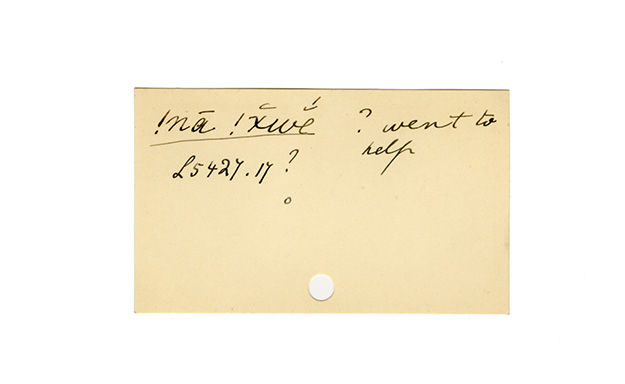 !nā !x̆wĕ́ ? went to
help
L5427.17 ?